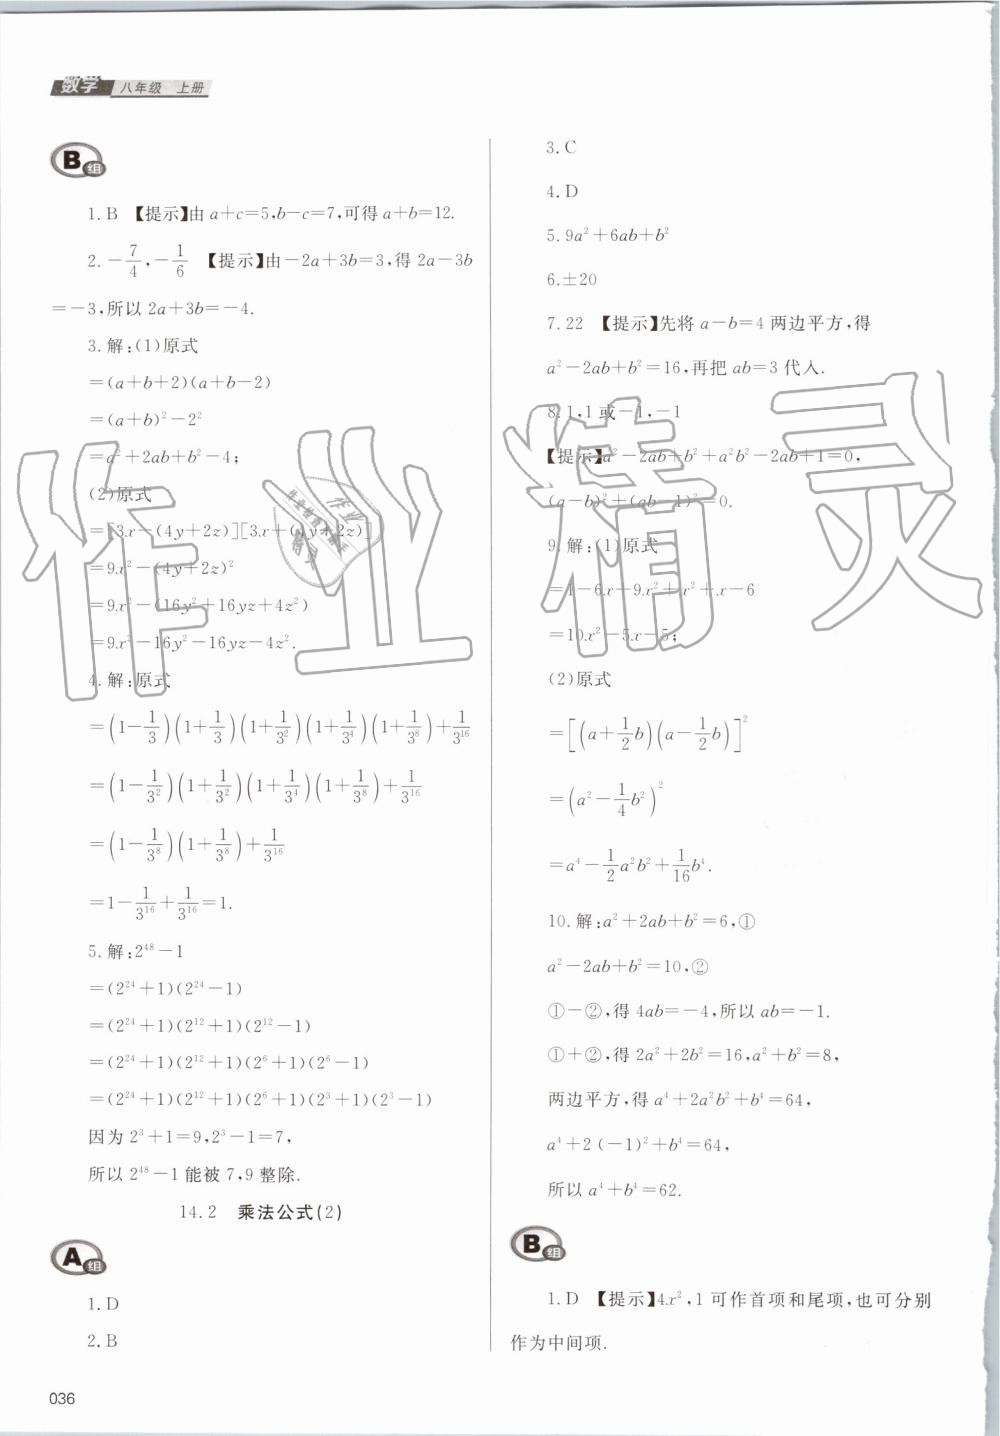 数学 八年级 上册
B组
1.B 【提示】由 a+c=5,b-c=7,可得 a+b=12.
2.-7/4,-1/6 【提示】由-2a+3b=3,得 2a-3b
=-3,所以 2a+3b=-4.
3.解:(1)原式
=(a+b+2)(a+b-2)
=(a+b)²-2²
=a²+2ab+b²-4;
(2)原式
=[3x-(4y+2z)][3x+(4y+2z)]
=9x²-(4y+2z)²
=9x²-(16y²+16yz+4z²)
=9x²-16y²-16yz-4z².
4.解:原式
=(1-1/3)(1+1/3)(1+1/3²)(1+1/3⁴)(1+1/3⁸)+1/3¹⁶
=(1-1/3²)(1+1/3²)(1+1/3⁴)(1+1/3⁸)+1/3¹⁶
=(1-1/3⁸)(1+1/3⁸)+1/3¹⁶
=1-1/3¹⁶+1/3¹⁶=1.
5.解:2⁴⁸-1
=(2²⁴+1)(2²⁴-1)
=(2²⁴+1)(2¹²+1)(2¹²-1)
=(2²⁴+1)(2¹²+1)(2⁶+1)(2⁶-1)
=(2²⁴+1)(2¹²+1)(2⁶+1)(2³+1)(2³-1)
因为 2³+1=9,2³-1=7,
所以 2⁴⁸-1 能被 7,9 整除.
14.2 乘法公式(2)
A组
1.D
2.B
3.C
4.D
5.9a²+6ab+b²
6.±20
7.22 【提示】先将 a-b=4 两边平方,得
a²-2ab+b²=16,再把 ab=3 代入.
8.1,1 或-1,-1
【提示】a²-2ab+b²+a²b²-2ab+1=0,
(a-b)²+(ab-1)²=0.
9.解:(1)原式
=1-6x+9x²+x²+x-6
=10x²-5x-5;
(2)原式
=[(a+1/2b)(a-1/2b)]²
=(a²-1/4b²)²
=a⁴-1/2a²b²+1/16b⁴.
10.解:a²+2ab+b²=6,①
a²-2ab+b²=10,②
①-②,得 4ab=-4,所以 ab=-1.
①+②,得 2a²+2b²=16,a²+b²=8,
两边平方,得 a⁴+2a²b²+b⁴=64,
a⁴+2(-1)²+b⁴=64,
所以 a⁴+b⁴=62.
B组
1.D 【提示】4x²,1 可作首项和尾项,也可分别
作为中间项.
036
作业精灵